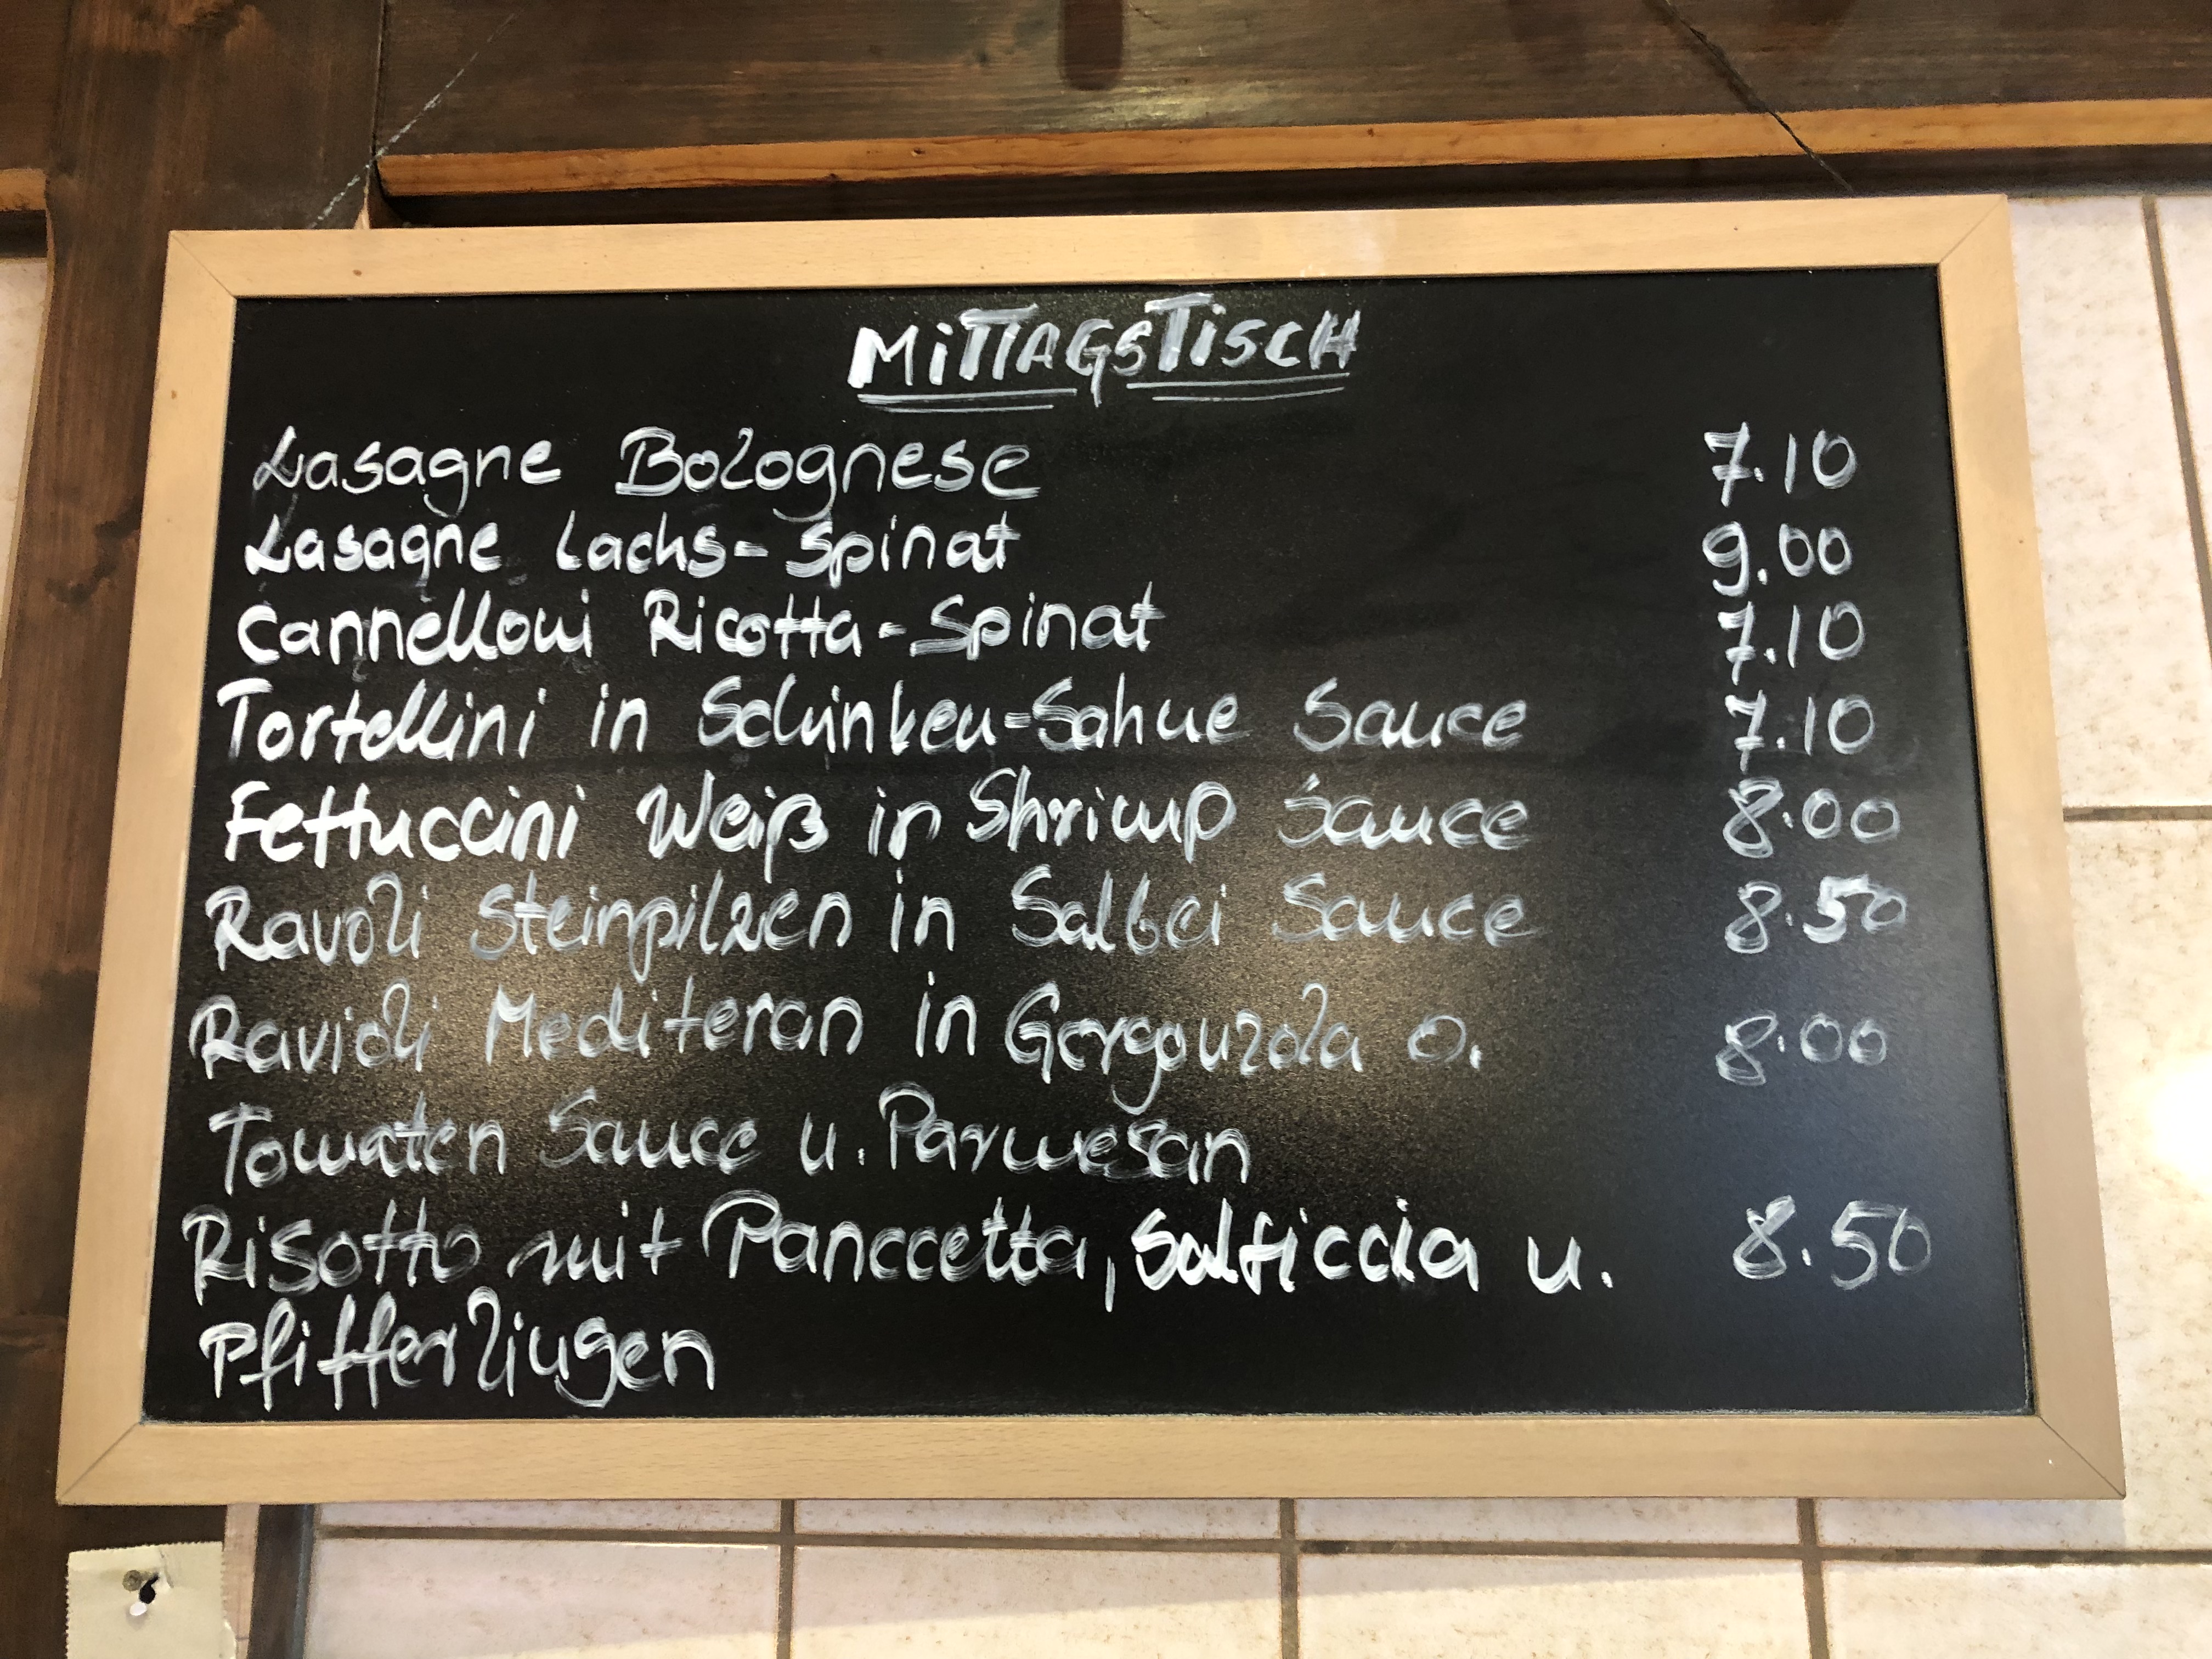 MiTTAGSTiSCH
Lasagne Bolognese 7.10
Lasagne Lachs-Spinat 9.00
Cannelloni Ricotta-Spinat 7.10
Tortellini in Schinken-Sahne Sauce 7.10
Fettuccini Weiß in Shrimp Sauce 8.00
Ravoli Steinpilzen in Salbei Sauce 8.50
Ravioli Mediteran in Gorgonzola o. 8.00
Tomaten Sauce u. Parmesan
Risotto mit Panccetta, Salficcia u. 8.50
Pfifferlingen